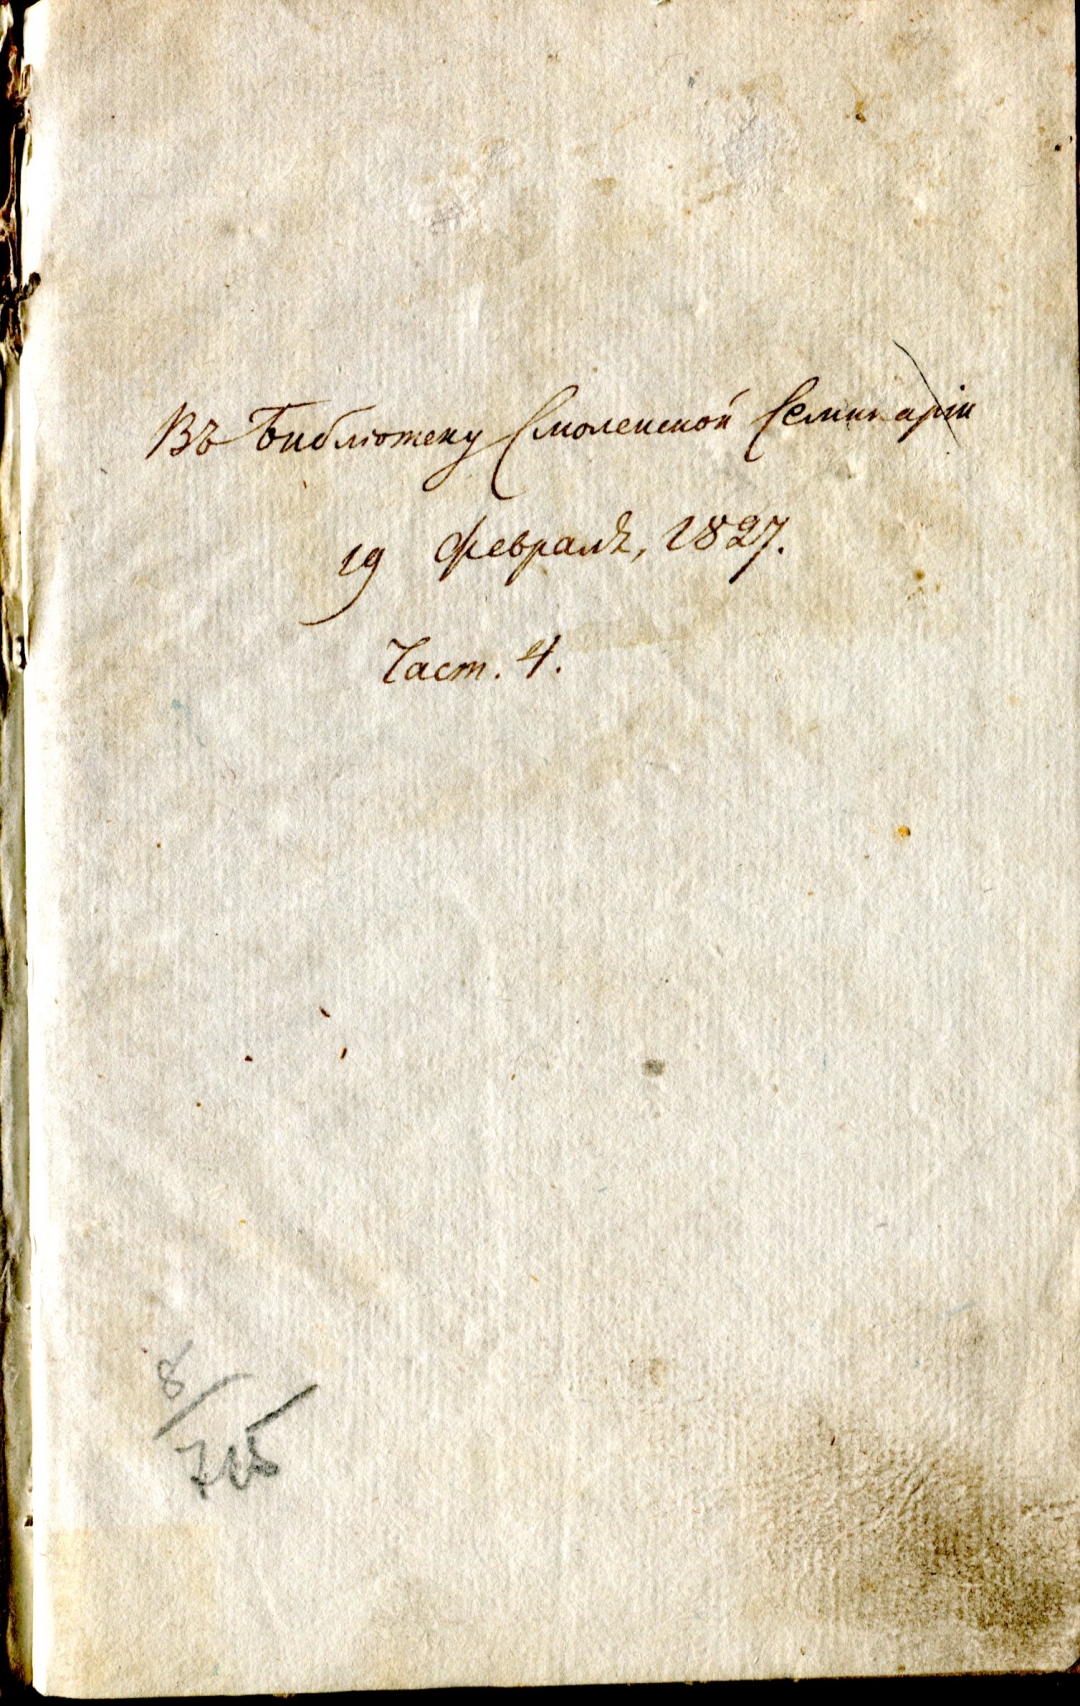 Въ Библіотеку Смоленской Семинаріи
19 Февралѣ, 1827.
Част. 4.
8/715